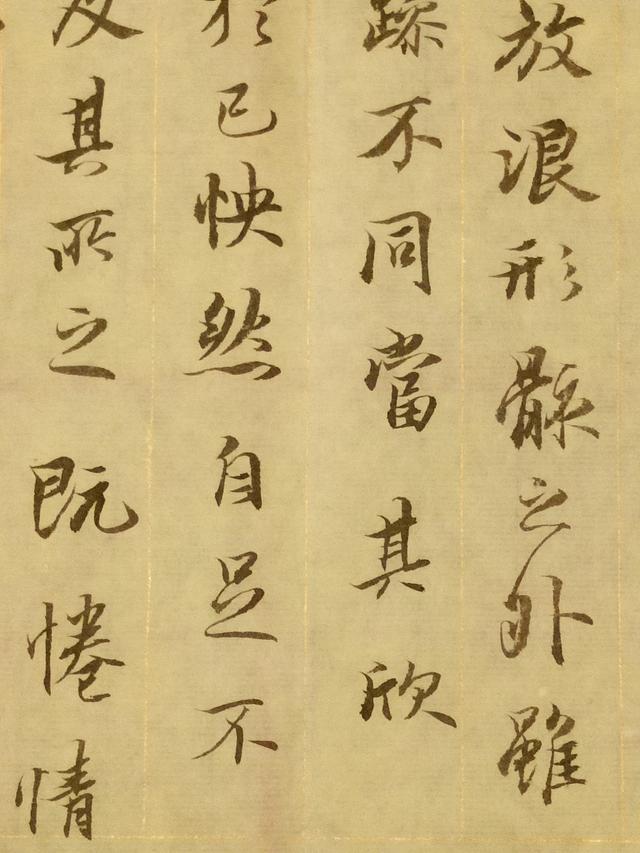 放浪形骸之外雖
躁不同當其欣
於己怏然自足不
及其所之既惓情